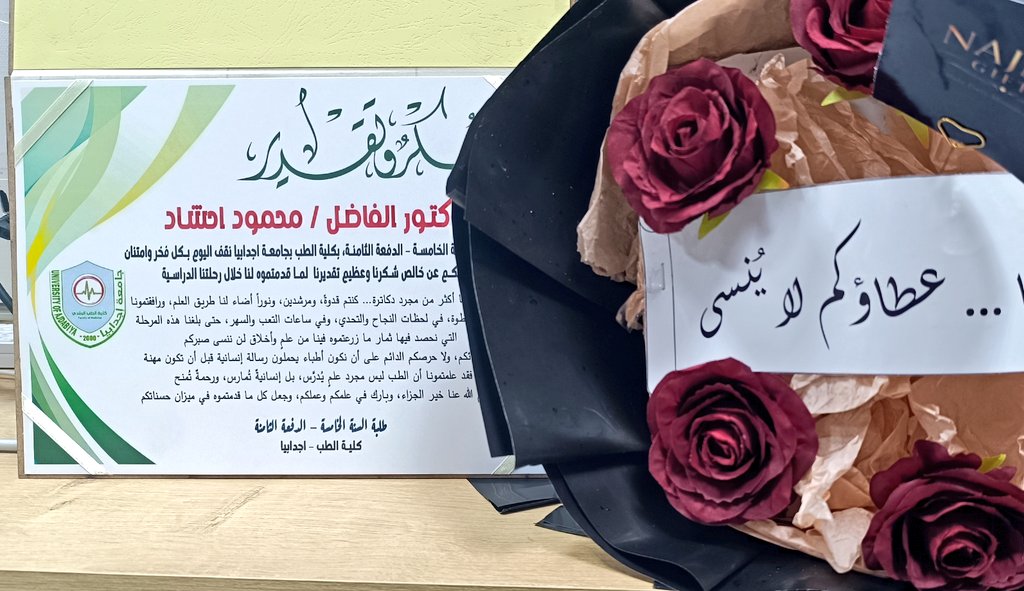 وتقدير
الفاضل / محمود احتناد
الخامسة – الدفعة الثامنة، بكلية الطب بجامعة اجدابيا نقف اليوم بكل فخر وامتنان
عن خالص شكرنا وعظيم تقديرنا لما قدمتموه لنا خلال رحلتنا الدراسية
أكثر من مجرد دكاترة... كنتم قدوةً، ومرشدين، ونوراً أضاء لنا طريق العلم، ورافقتمونا
في لحظات النجاح والتحدي، وفي ساعات التعب والسهر، حتى بلغنا هذه المرحلة
التي نحصد فيها ثمار ما زرعتموه فينا من علمٍ وأخلاق لن ننسى صبركم
ولا حرصكم الدائم على أن نكون أطباء يحملون رسالة إنسانية قبل أن تكون مهنة
فقد علمتمونا أن الطب ليس مجرد علمٍ يُدرَّس، بل إنسانيةٌ تُمارس، ورحمةٌ تُمنح
الله عنا خير الجزاء، وبارك في علمكم وعملكم، وجعل كل ما قدمتموه في ميزان حسناتكم
طلبة السنة الخامسة – الدفعة الثامنة
كلية الطب – اجدابيا
جامعة اجدابيا
كلية الطب البشري
Faculty of Medicine
UNIVERSITY OF AJDABIYA
- 2000 -
... عطاؤكم لا يُنسى